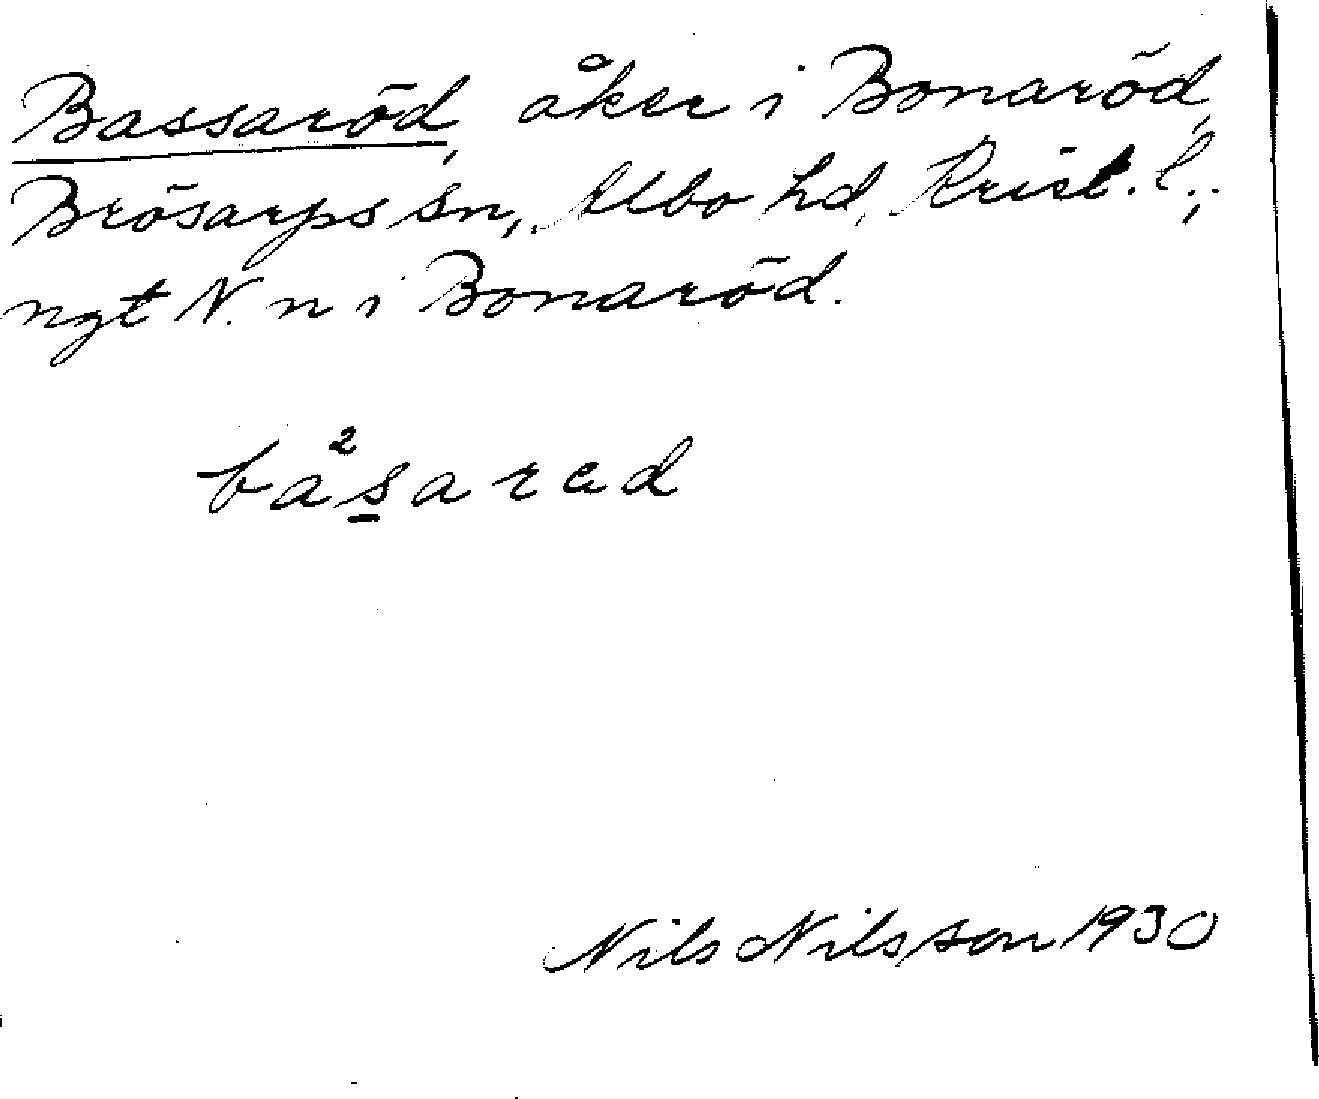 Bassaröd, åker i Bonaröd,
Brösarps sn, Albo hd, Krist. l.;
ngt N. n i Bonaröd.
ba²s̲arad
Nils Nilsson 1930